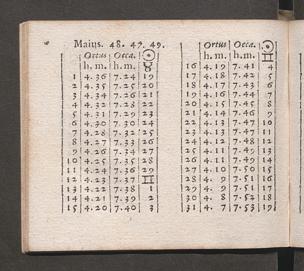 Maius. 48. 47. 49.
Ortus Occa. ☉
h. m. h. m. ♉
1 4.36 7.24 19
2 4.35 7.25 20
3 4.34 7.26 21
4 4.32 7.28 22
5 4.31 7.29 23
6 4.30 7.30 24
7 4.28 7.32 25
8 4.27 7.33 26
9 4.26 7.34 27
10 4.25 7.35 28
11 4.24 7.36 29
12 4.23 7.37 ♊
13 4.22 7.38 1
14 4.21 7.39 2
15 4.20 7.40 3
Ortus Occa. ☉
h. m. h. m. ♊
16 4.19 7.41 4
17 4.18 7.42 5
18 4.17 7.43 6
19 4.16 7.44 7
20 4.15 7.45 8
21 4.14 7.46 9
22 4.13 7.47
23 4.13 7.47
24 4.12 7.48
25 4.11 7.49
26 4.11 7.49 14
27 4.10 7.50 15
28 4. 9 7.51 16
29 4. 9 7.51 17
30 4. 8 7.52 18
31 4. 7 7.53 19